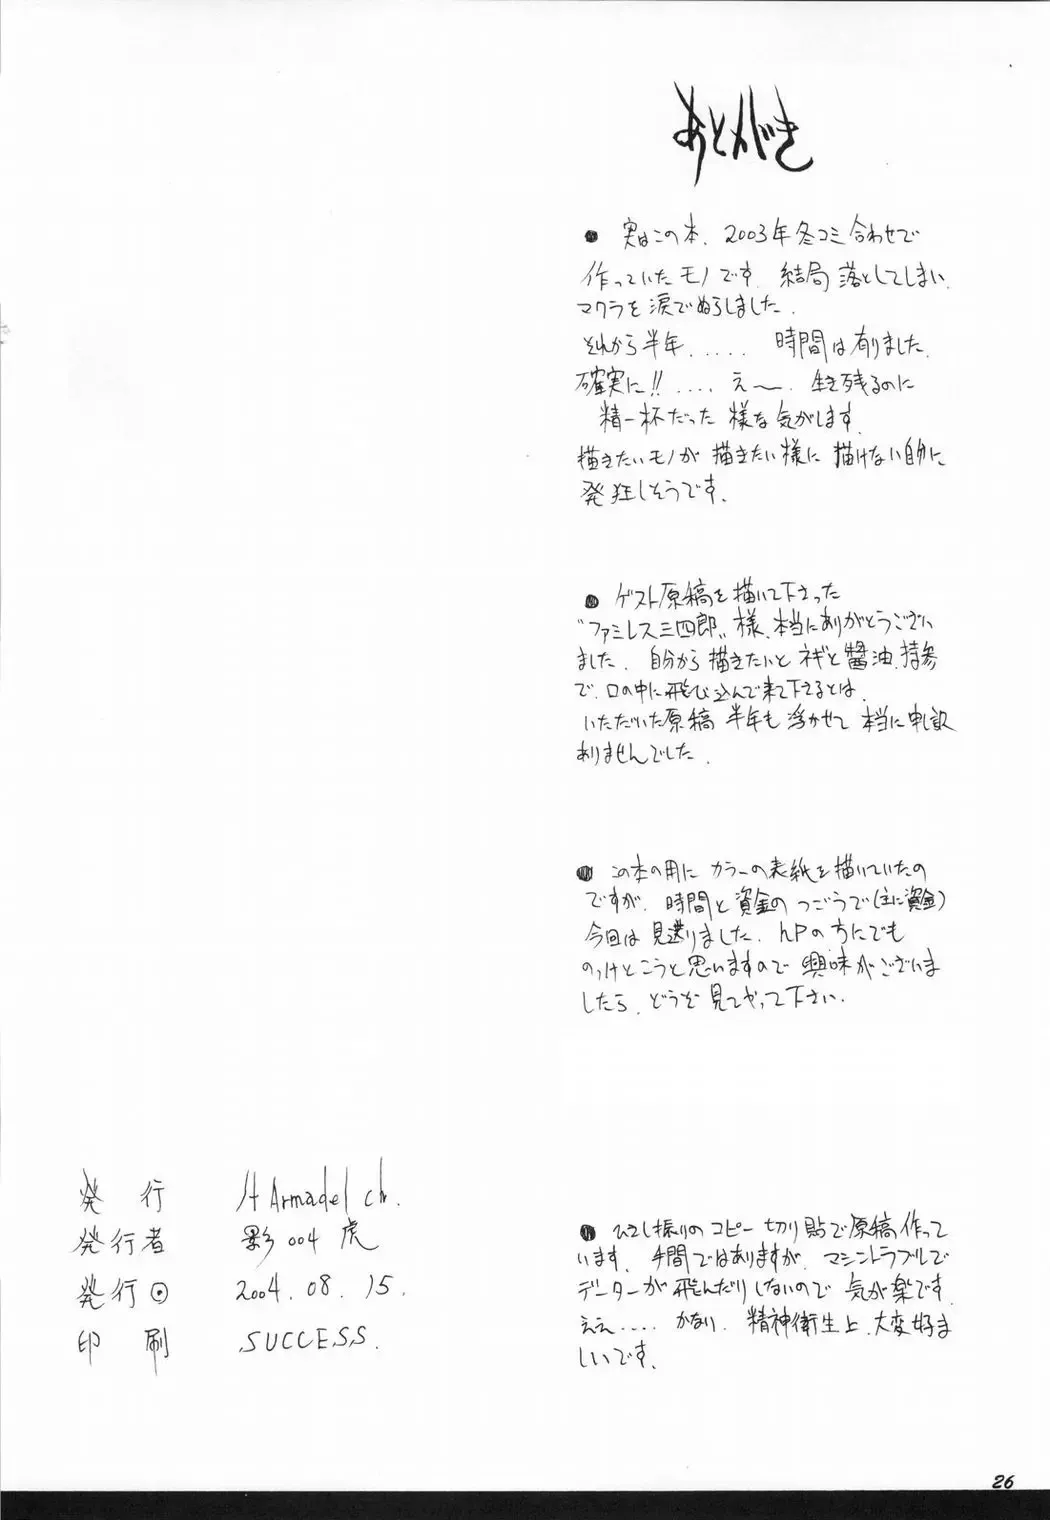 あとがき
● 実はこの本、2003年冬コミ合わせで
作っていたモノです。結局落としてしまい、
マクラを涙でぬらしました。
それから半年．．．．．時間は有りました。
確実に!!．．．．え〜、生き残るのに
精一杯だった様な気がします。
描きたいモノが描きたい様に描けない自分に
発狂しそうです。
● ゲスト原稿を描いて下さった
"ファミレス三四郎"様、本当にありがとうござい
ました。自分から描きたいとネギと醤油、持参
で、口の中に飛び込んで来て下さるとは、
いただいた原稿半年も浮かせて本当に申し訳
ありませんでした。
● この本の用にカラーの表紙を描いていたの
ですが、時間と資金のつごうで(主に資金)
今回は見送りました。HPの方にでも
のっけとこうと思いますので興味がございま
したら、どうぞ見てやって下さい。
● ひさし振りのコピー切り貼で原稿作って
います。手間ではありますが、マシントラブルで
データーが飛んだりしないので気が楽です。
ええ．．．．かなり、精神衛生上、大変好ま
しいです。
発行 Armadel ch.
発行者 影004虎
発行日 2004.08.15.
印刷 SUCCESS.
26